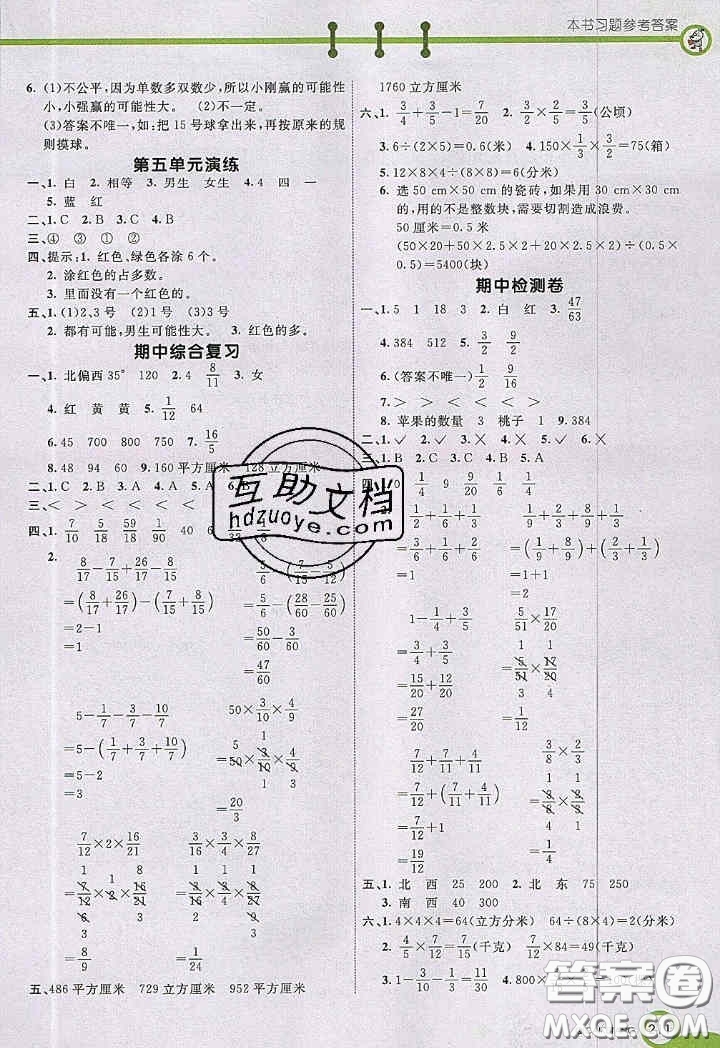 本书习题参考答案
6. (1)不公平,因为单数多双数少,所以小刚赢的可能性
小,小强赢的可能性大。 (2)不一定。
(3)答案不唯一,如:把 15 号球拿出来,再按原来的规
则摸球。
第五单元演练
一、1. 白 2. 相等 3. 男生 女生 4. 4 四 一
5. 蓝 红
二、1. C 2. B 3. C 4. B
三、④ ③ ① ②
四、提示:1. 红色、绿色各涂 6 个。
2. 涂红色的占多数。
3. 里面没有一个是红色的。
五、1. (1)2,3 号 (2)1 号 (3)3 号
2. 都有可能,男生可能性大。 3. 红色的多。
期中综合复习
一、1. 北偏西 35° 120 2. 4 8/11 3. 女
4. 红 黄 黄 5. 1/12 64
6. 45 700 800 750 7. 16/5
8. 48 94 60 9. 160 平方厘米 128 立方厘米
二、1. C 2. A 3. B 4. B 5. A
三、< > < > < <
四、1. 7/10 5/18 59/18 1/90 40 6
2. 8/17 - 7/15 + 26/17 - 8/15
=(8/17 + 26/17) - (7/15 + 8/15)
=2-1
=1
5/6 - (7/15 - 5/12)
= 5/6 - (28/60 - 25/60)
= 50/60 - 3/60
= 47/60
5 - 1/7 - 3/7 - 10/7
=5 - (1/7 + 3/7 + 10/7)
=5-2
=3
50 × 3/10 × 4/9
= 20/3
7/12 × 2 × 16/21
= 8/9
1/16 × 3/4 × 8/27
= 1/24
五、486 平方厘米 729 立方厘米 952 平方厘米
1760 立方厘米
六、1. 3/4 + 3/5 - 1 = 7/20 2. 3/2 × 2/5 = 3/5(公顷)
3. 6÷(2×5)=0.6(米) 4. 150 × 3/2 × 1/3 = 75(箱)
5. 12×8×4÷(8×6)=8(分米)
6. 选 50 cm×50 cm 的瓷砖,如果用 30 cm×30 cm
的不是整数块,需要切割造成浪费。
50 厘米=0.5 米
(50×20+50×2.5×2+20×2.5×2)÷(0.5×
0.5)=5400(块)
期中检测卷
一、1. 5 1 18 3 2. 白 红 3. 47/63
4. 384 512 5. 4/9 1/4
6. (答案不唯一) 1/2 9/16
7. > > < < < >
8. 苹果的数量 3 桃子 1 9. 384
二、1. ✓ 2. ✓ 3. ✓ 4. ✓ 5. ✓ 6. ×
三、1. B 2. C 3. B 4. A 5. A
=1
=1+1
=2
1 - 1/4 + 3/5
= 15/20 + 12/20
= 27/20
5/51 × 17/20
= 1/12
7/12 + 7/11 + 4/11
= 7/12 + (7/11 + 4/11)
= 7/12 + 1
五、1. 北 西 25 200 2. 北 东 75 250
3. 南 西 40 300
六、1. 4×4×4=64(立方分米) 64÷(8×4)=2(分米)
3. 1 - 3/10 - 1/3 = 11/30
互助文档
hdzuoye.com
答案圈
MXQE.COM